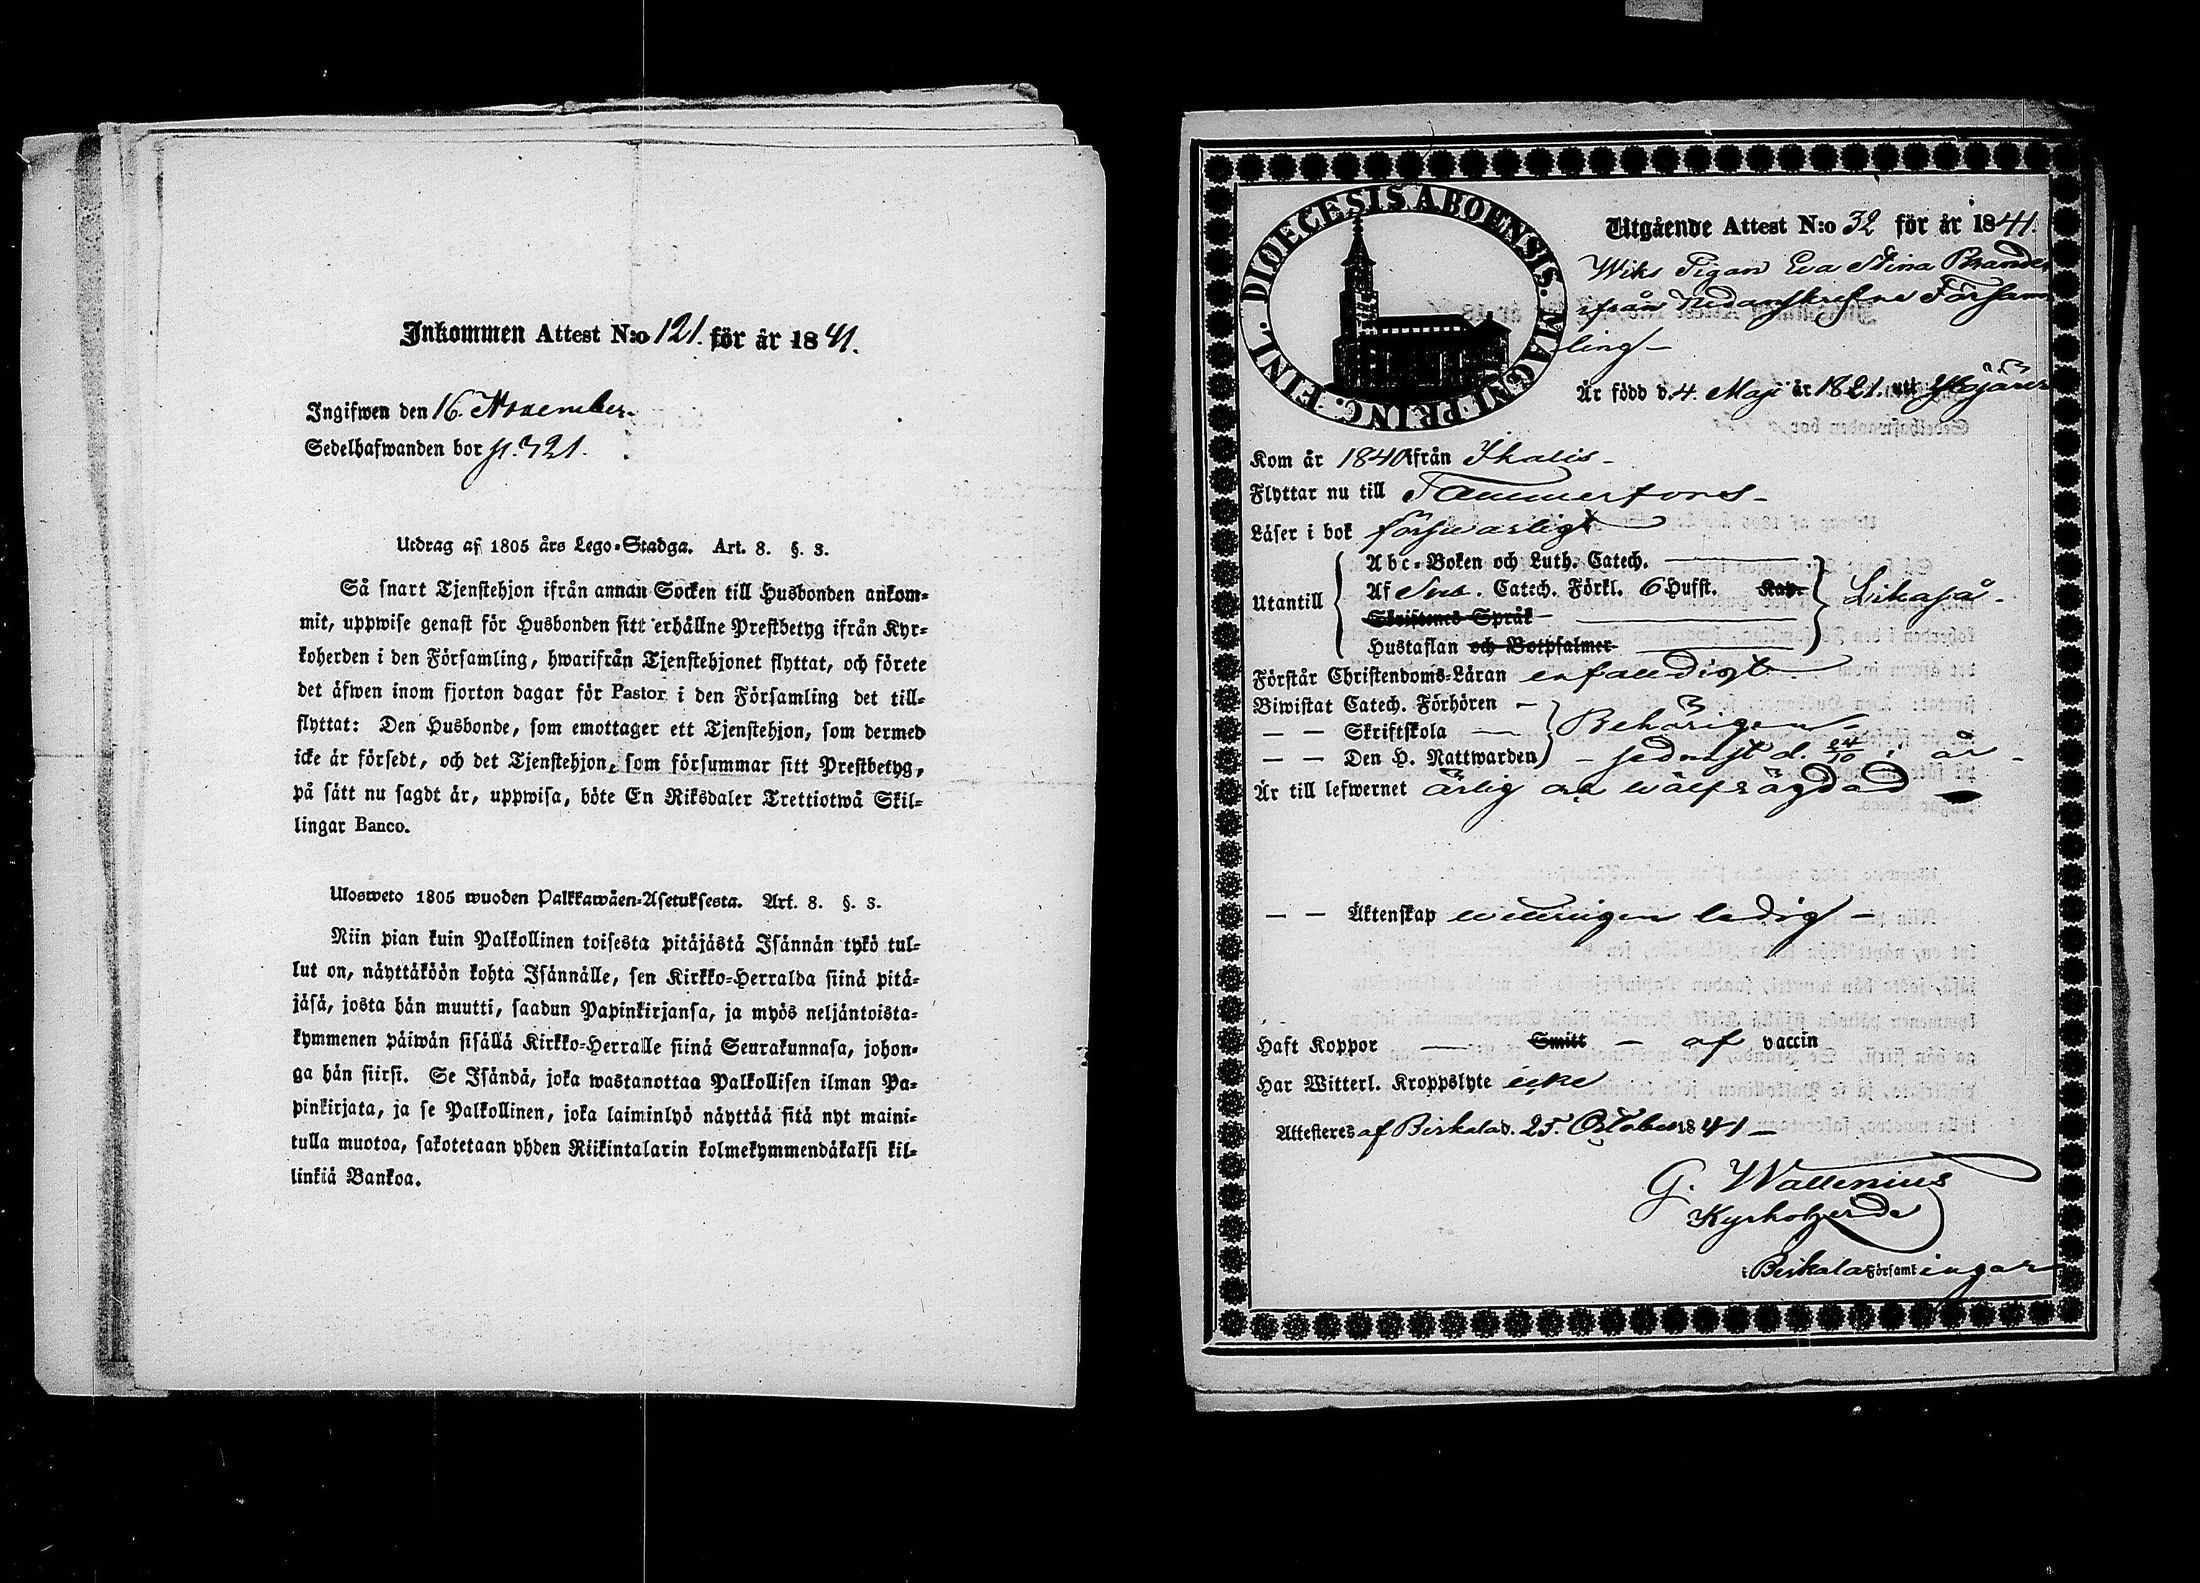 Inkommen Attest N:o 121. för år 1841.
Ingifwen den 16 November.
Sedelhafwanden bor p. 321.
Utdrag af 1805 års Lego-Stadga. Art. 8. §. 3.
Så snart Tjenstehjon ifrån annan Socken till Husbonden ankom-
mit, uppwise genast för Husbonden sitt erhållne Prestbetyg ifrån Kyr-
koherden i den Församling, hwarifrån Tjenstehjonet flyttat, och förete
det äfwen inom fjorton dagar för Pastor i den Församling det till-
flyttat: Den Husbonde, som emottager ett Tjenstehjon, som dermed
icke är försedt, och det Tjenstehjon, som försummar sitt Prestbetyg,
på sätt nu sagdt är, uppwisa, böte En Riksdaler Trettiotwå Skil-
lingar Banco.
Ulosweto 1805 wuoden Palkkawäen-Asetuksesta. Art. 8. §. 3.
Niin pian kuin Palkollinen toisesta pitäjästä Isännän tykö tul-
lut on, näyttäköön kohta Isännälle, sen Kirkko-Herralda siinä pitä-
jäsä, josta hän muutti, saadun Papinkirjansa, ja myös neljäntoista-
kymmenen päiwän sisällä Kirkko-Herralle siinä Seurakunnasa, johon-
ga hän siirsi. Se Isändä, joka wastanottaa Palkollisen ilman Pa-
pinkirjata, ja se Palkollinen, joka laiminlyö näyttää sitä nyt maini-
tulla muotoa, sakotetaan yhden Riikintalarin kolmekymmendäkaksi kil-
linkiä Bankoa.
DIOECESIS ABOENSIS. MAGNI PRINC. FINL.
Utgående Attest N:o 32 för år 1841.
Wiks Pigan Eva Stina Brander
från nedanskrefne Försam
ling
Är född d. 4. Maji år 1821. uti
Kom år 1840 ifrån Ikalis
Flyttar nu till Tammerfors
Läser i bok försvarligt
Abc-Boken och Luth. Catech.
Utantill Af Sveb. Catech. Förkl. 6 Hufst. Kap. Likaså
Skriftenes Språk
Hustaflan och Botpsalmer
Förstår Christendoms-Läran enfaldigt.
Biwistat Catech. Förhören
— — Skriftskola — Behörigen
— — Den H. Nattwarden sednast d. 24/10 i år
Är till lefwernet ärlig och wälfrägdad
— — Äktenskap ledig
Haft Koppor — Smitt — af vaccin
Har Witterl. Kroppslyte icke
Attesteres af Birkala d. 25. October 1841
G. Wallenius
Kyrkoherde
i Birkala Församlingar